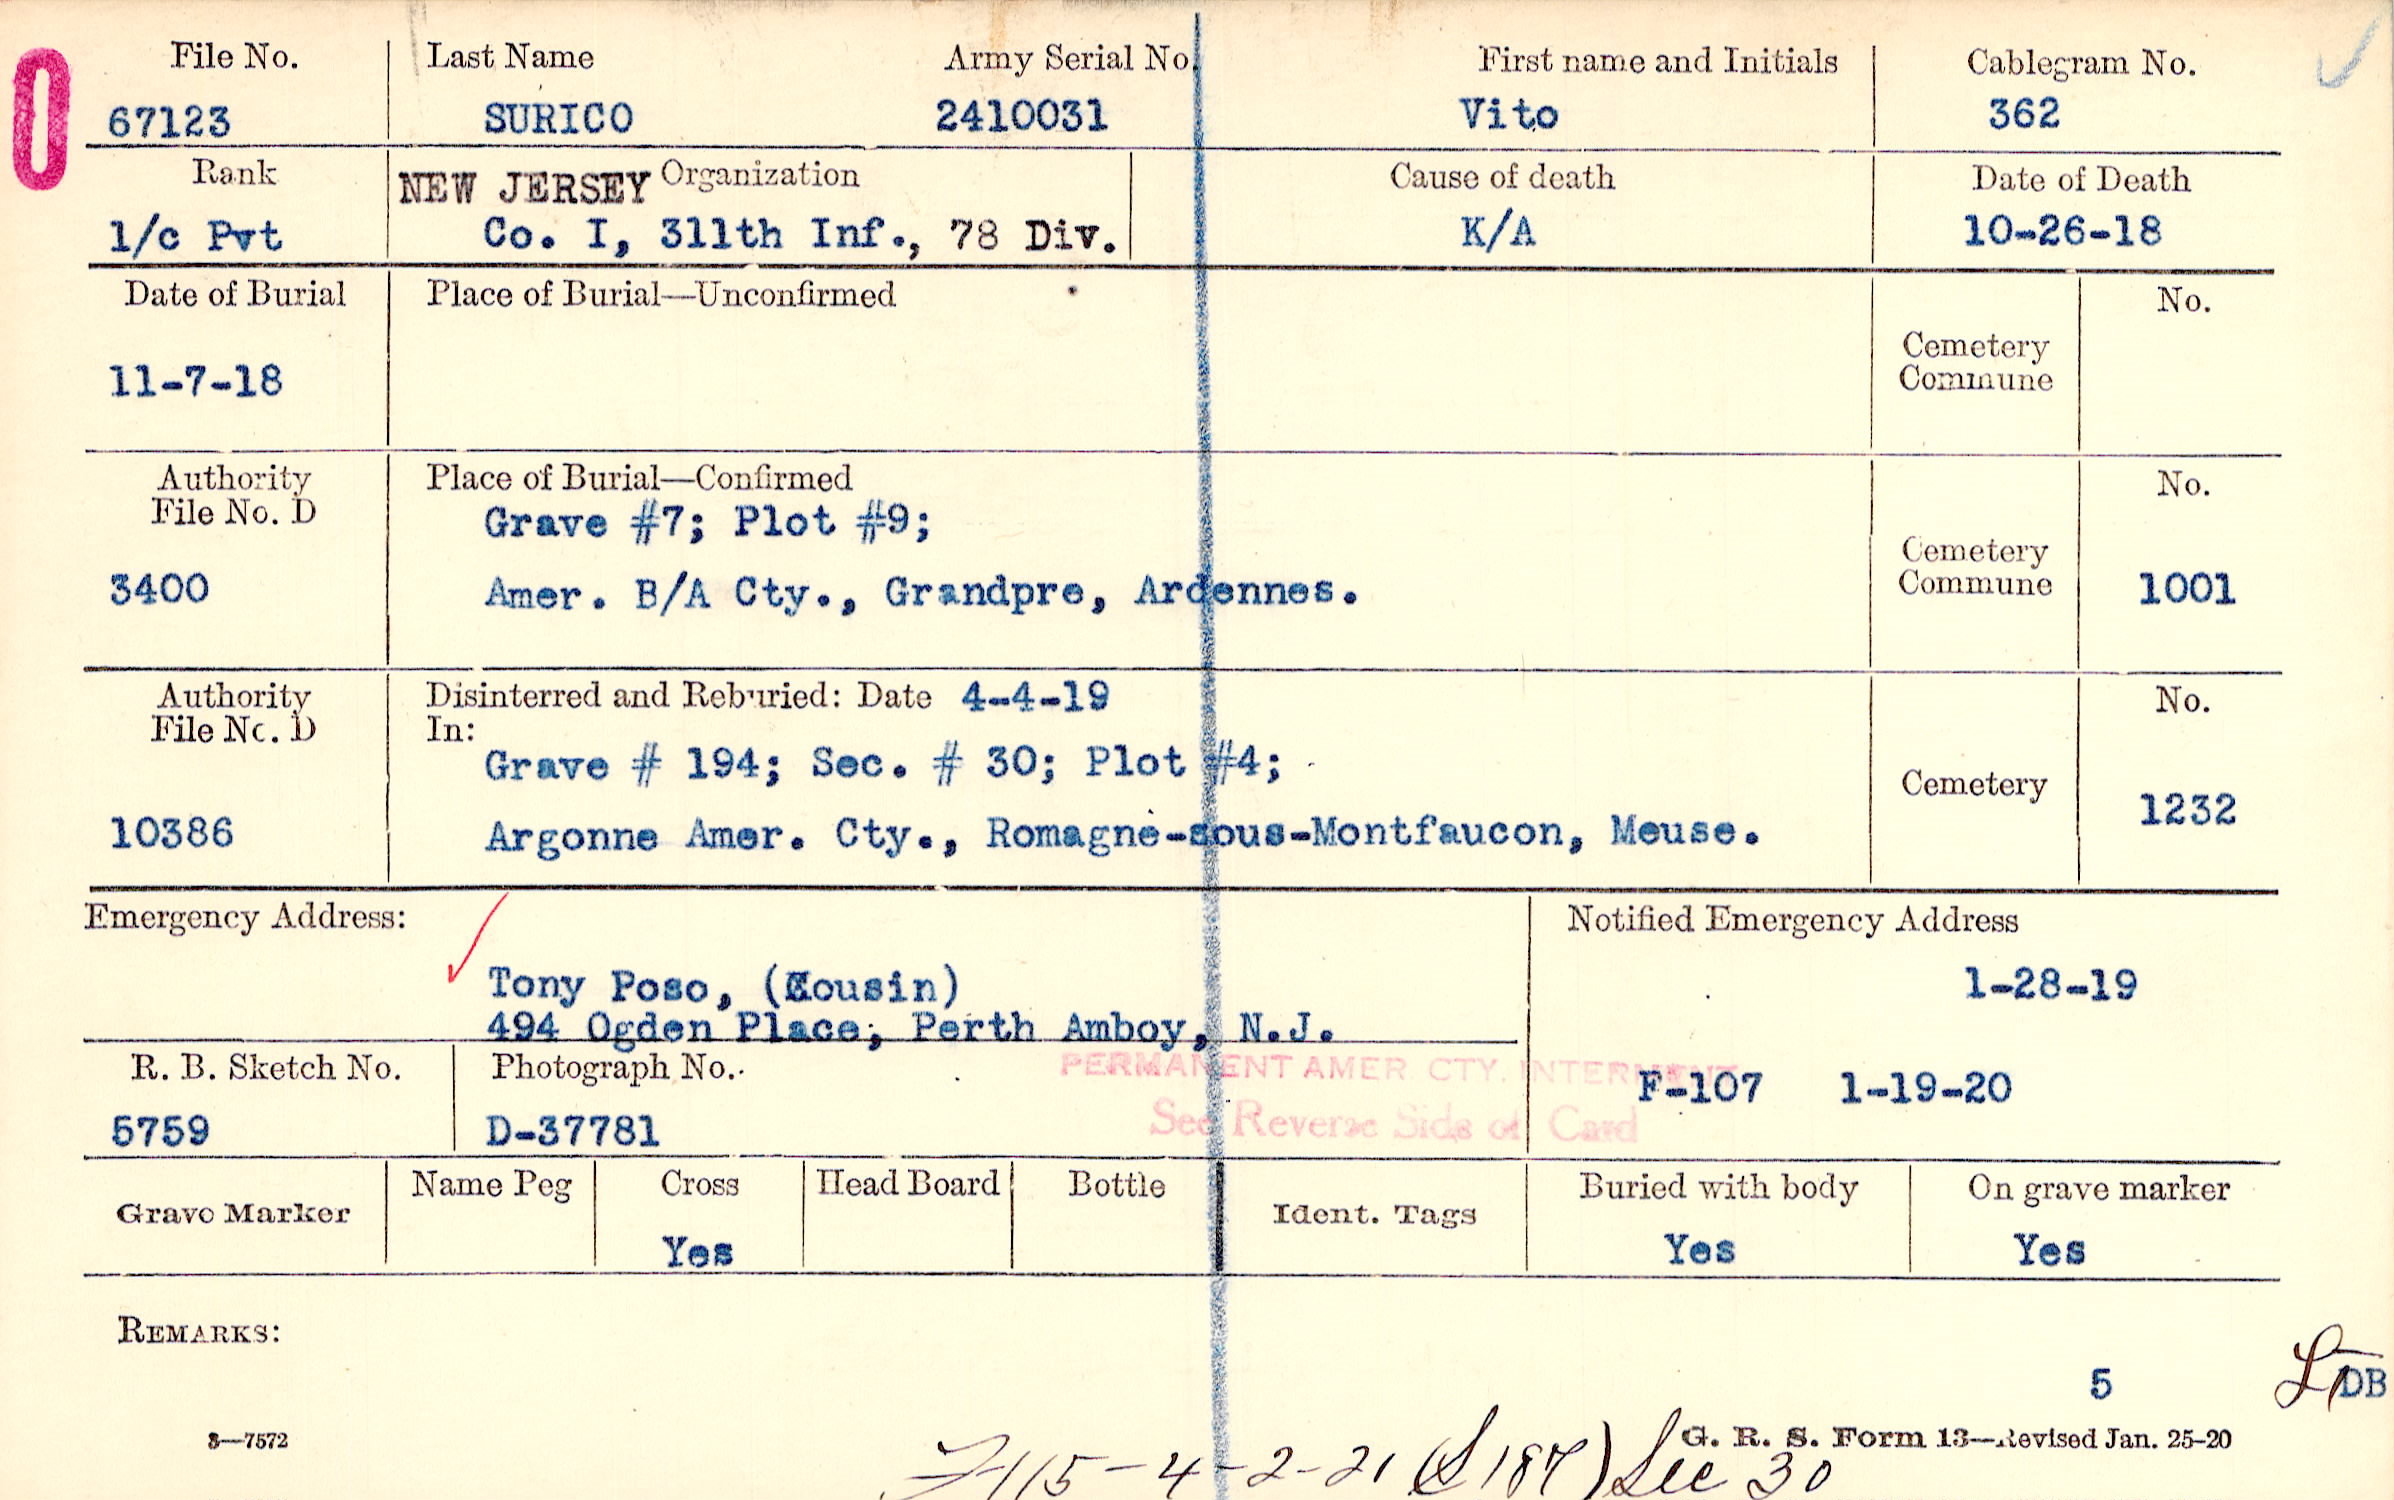 File No. Last Name Army Serial No. First name and Initials Cablegram No.
67123 SURICO 2410031 Vito 362
Rank NEW JERSEY Organization Cause of death Date of Death
1/c Pvt Co. I, 311th Inf., 78 Div. K/A 10-26-18
Date of Burial Place of Burial—Unconfirmed No.
Cemetery
Commune
11-7-18
Authority Place of Burial—Confirmed No.
File No. D
Grave #7; Plot #9;
Cemetery
Commune
3400 Amer. B/A Cty., Grandpre, Ardennes. 1001
Authority Disinterred and Reburied: Date 4-4-19 No.
File No. D In:
Grave # 194; Sec. # 30; Plot #4;
Cemetery
10386 Argonne Amer. Cty., Romagne-sous-Montfaucon, Meuse. 1232
Emergency Address: Notified Emergency Address
Tony Poso, (Cousin) 1-28-19
494 Ogden Place, Perth Amboy, N.J.
R. B. Sketch No. Photograph No. PERMANENT AMER. CTY. INTERMENT
F-107 1-19-20
5759 D-37781 See Reverse Side of Card
Grave Marker Name Peg Cross Head Board Bottle Ident. Tags Buried with body On grave marker
Yes Yes Yes
REMARKS:
5 DB
3—7572 G. R. S. Form 13—Revised Jan. 25-20
115-4-2-21 187) Sec 30